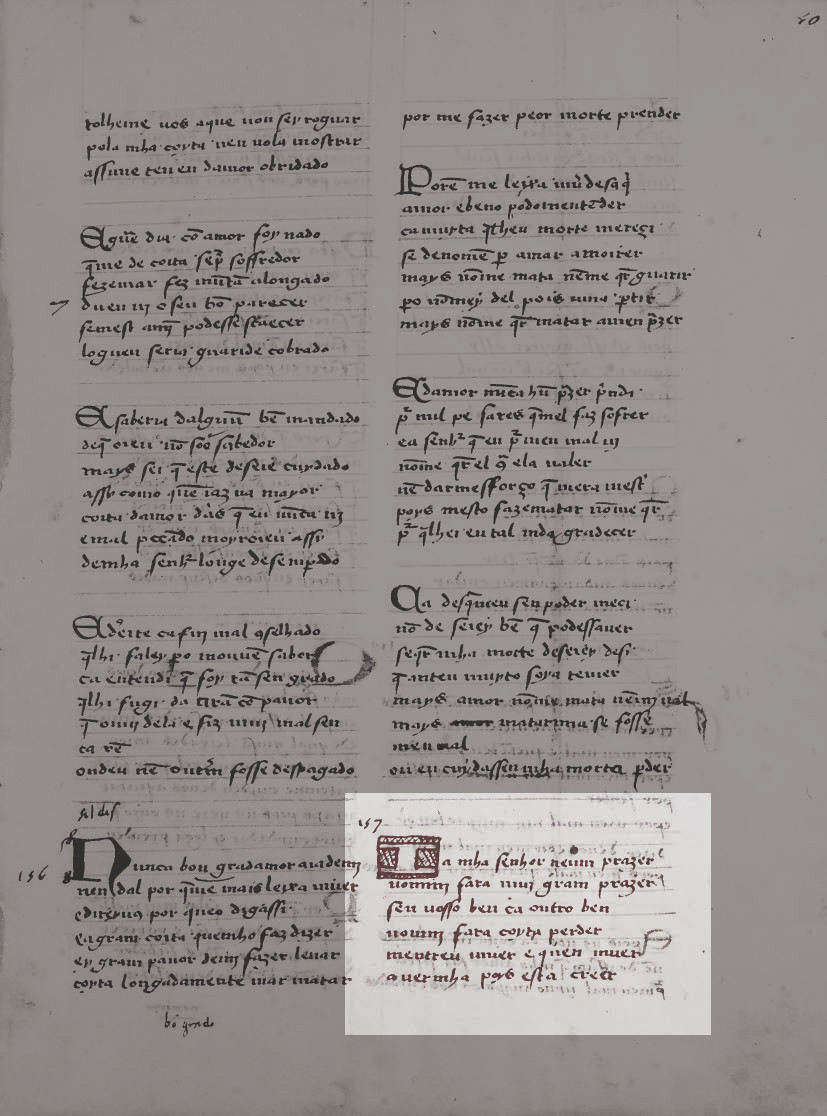 40
tolheme uos aque non sey roguar
pola mha coyta nen uola mostrar
assime ten en damor obridado
Aquē dia cō amor foy nado
q̄me de coita sēp̄ soffredor
fezemar fez muyta alongado
duen uj o seu bō parecer
semest am̄ podesse
loguen seria guaride cobrado
E saberia dalguū bē mandado
deq̄ oieu nō soō sabedor
mays sei q̄ este deseiē cuydado
assy como quē iaz na mayor
coita damor dās q̄ eu nūca uj
e mal pecado moyroieu assy
demha senhr̄ longe desempado
E dereite ca fin mal 9selhado
q̄lhi faley po monuē saber
ca entendi q̄ foy tā sen grado
q̄lhi fugi da tirā cō pauor
q̄ ouuj dela e fiz muj mal sen
ca rē
onden nē outrm̄ fosse despagado
fol dis
156
Nunca bon gradamor aiadem
nen dal por q̄me mais leixa uiuer
edireyuꝯ por queo digassi
ea gram coita quemho faz dizer
ey gram pauor demj fazer leuar
coyta longadamente mar matar
bō grado
por me fazer peor morte prender
Porē me leixa uiūdesaq̄
amor e beno podomentēder
ca muyta q̄lheu morte mereçi
se denomē p amar a moirer
mays nōme mata nēme qr̄ guarir
po nōmey del pois uina ptir
mays nōme qr̄ matar amen pzer
E damor nūca hū pzer pndi
pr̄ mil pesares q̄mel faz sofrer
ea senhr̄ q̄ eu pr̄ meu mal uj
nōme qr̄ el 9 ela ualer
nē dar mesfforço q̄ mera mester
poys mesto fazematar nōme qr̄
pr̄ q̄lhei en tal mda gradecer
Ca desq̄nteu sen poder meci
nō de seiey bē q̄ podessauer
seqr̄ mha morte deseiey desi
q̄ anteu muyto soya temer
mays amor nōme mata nēmj ual
mays amor matarmia se fosse
meu mal
ou eu cuydassen mha morte a pder
157
La mha senhor neum prazer
nommj fara muj gram prazer
sen uosso ben ca outro ben
nommj fara coyta perder
mentreu uiuer e quen uiuer
auermha poys esta creer